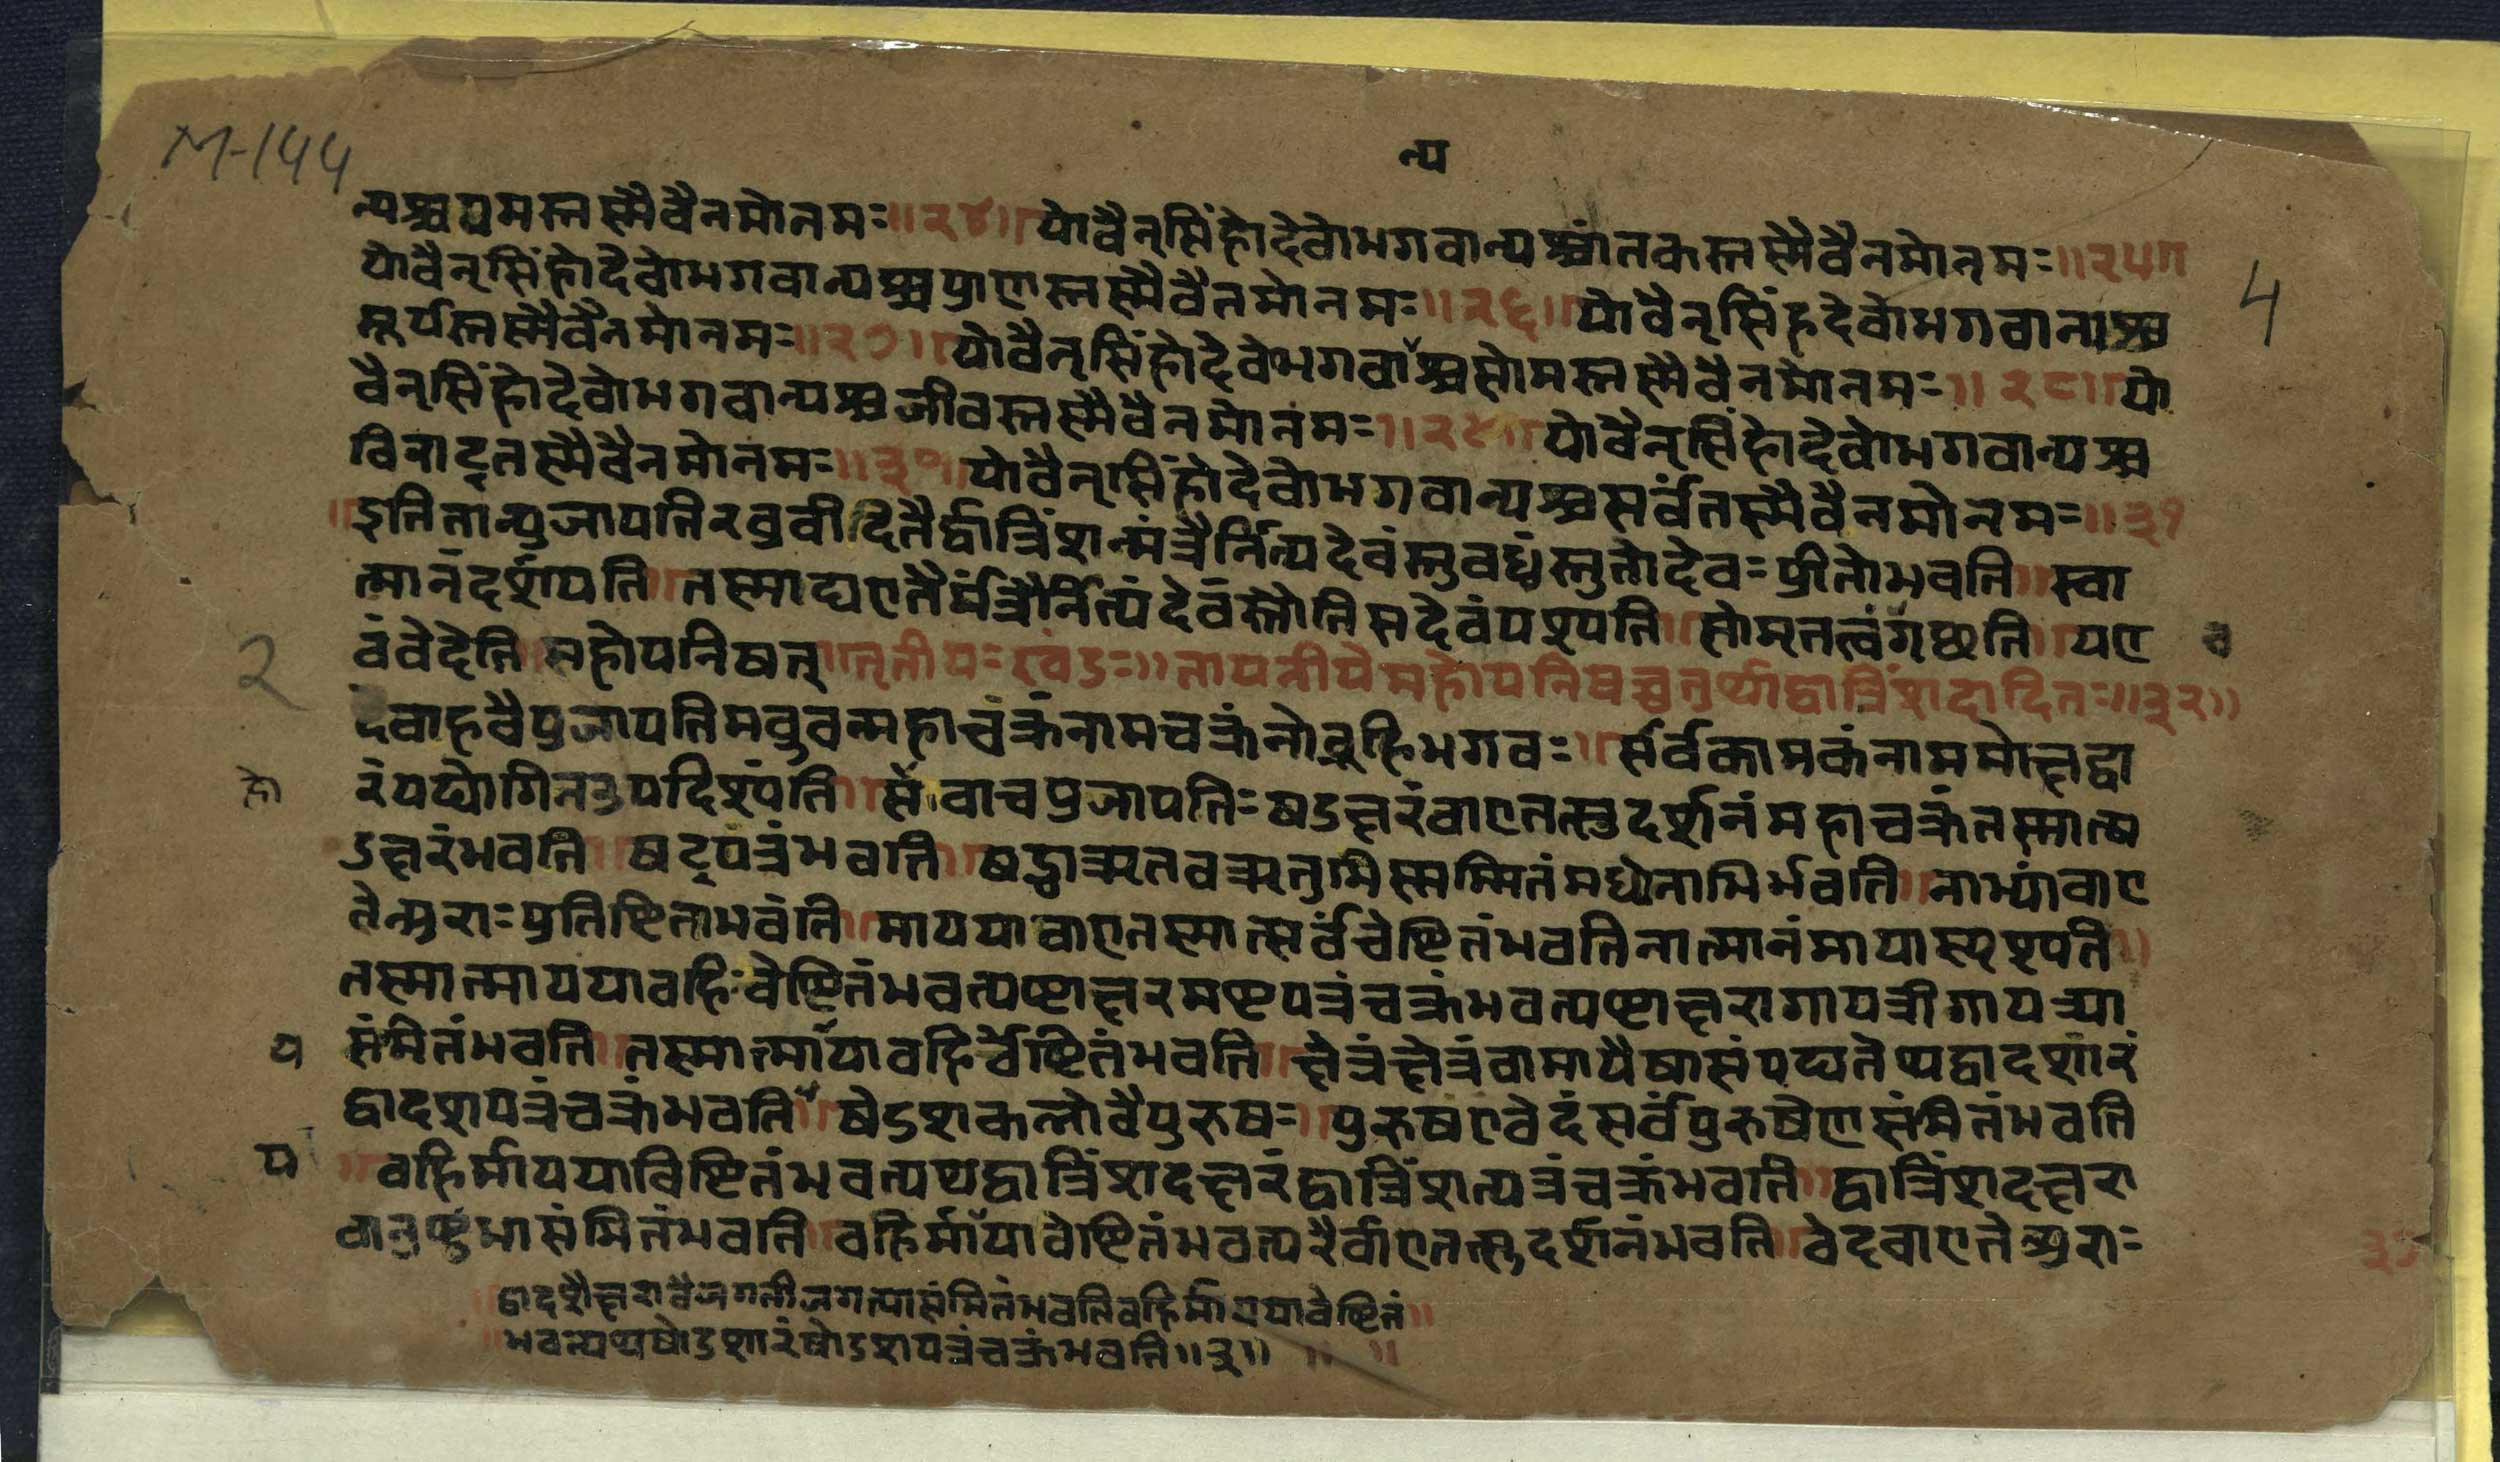 M-144
न्य
न्यश्चयमस्तस्मैवैनमोनमः॥२४॥योवैनृसिंहोदेवोभगवान्यश्चांतकस्तस्मैवैनमोनमः॥२५॥
योवैनृसिंहोदेवोभगवान्यश्चप्राणस्तस्मैवैनमोनमः॥२६॥योवैनृसिंहदेवोभगवानाश्च
4
सूर्यस्तस्मैवैनमोनमः॥२७॥योवैनृसिंहोदेवोभगवांश्चसोमस्तस्मैवैनमोनमः॥२८॥यो
वैनृसिंहोदेवोभगवान्यश्चजीवस्तस्मैवैनमोनमः॥२९॥योवैनृसिंहोदेवोभगवान्यश्च
विराट्तस्मैवैनमोनमः॥३०॥योवैनृसिंहोदेवोभगवान्यश्चसर्वंतस्मैवैनमोनमः॥३१
॥इतितान्प्रजापतिरब्रवीदेतैर्द्वात्रिंशन्मंत्रैर्नित्यदेवंस्तुवध्वंस्तुतोदेवःप्रीतोभवति॥स्वा
त्मानंदर्शयति॥तस्माद्यएतैर्मंत्रैर्नित्यंदेवंस्तौतिसदेवंपश्यति॥सोमृतत्वंगछति॥यए
व
वंवेदेति॥सहोपनिषत्॥तृतीयःखंडः॥तापनीयेमहोपनिषच्चतुर्थ्याद्वात्रिंशदादितः॥३२॥
2
देवाहवैप्रजापतिमब्रुवन्महाचक्रंनामचक्रंनोब्रूहिभगवः॥सर्वकामकंनाममोक्षद्वा
रंयद्योगिनउपदिशंति॥सोवाचप्रजापतिःषडक्षरंवाएतत्सुदर्शनंमहाचक्रंतस्मात्ष
डक्षरंभवति॥षट्पत्रंभवति॥षड्वाऋतवऋतुभिस्सम्मितंमध्येनाभिर्भवति॥नाभ्यांवाए
तेन्प्रराःप्रतिष्टिताभवंति॥माययावाएतस्मात्सर्वंचेष्टितंभवतिनात्मानंमायास्पृश्यति॥
तस्मान्माययावहिःवेष्टितंभवत्यष्टाक्षरमष्टपत्रंचक्रंभवत्यष्टाक्षरागायत्रीगायत्र्या
य
संमितंभवति॥तस्मात्मायावहिर्वेष्टितंभवति॥क्षेत्रंक्षेत्रंवामायैषासंपद्यतेथद्वादशारं
द्वादशपत्रंचक्रंभवति॥षेडशकलोवैपुरुषः॥पुरुषएवेदंसर्वंपुरुषेणसंमितंभवति
य
॥वहिर्माययाविष्टितंभवत्यथद्वात्रिंशदक्षरंद्वात्रिंशत्पत्रंचक्रंभवति॥द्वात्रिंशदक्षरा
वानुष्टुभासंमितंभवति॥वहिर्मायावेष्टितंभवत्यरैर्वाएतत्सुदर्शनंभवति॥वेदवाएतेन्प्रराः
॥द्वादशैक्षरावैजगतीजगत्यासंमितंभवतिवहिर्माययावेष्टितं॥
॥भवत्यथषोडशारंषोडशपत्रंचक्रंभवति॥३॥ ॥ ॥